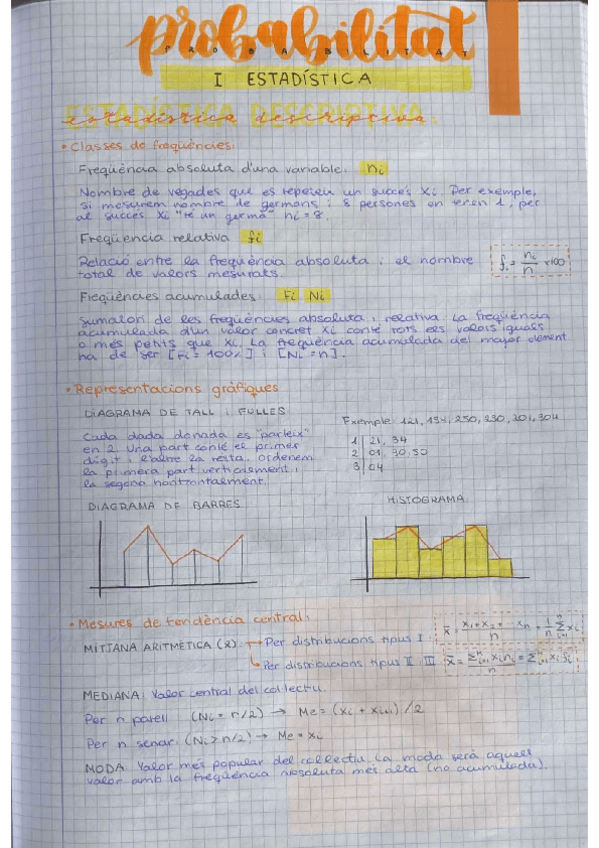 probabilitat
PROBABILITAT
I ESTADÍSTICA
ESTADÍSTICA DESCRIPTIVA
estadística descriptiva.
• Classes de freqüències:
Freqüència absoluta d'una variable: ni
Nombre de vegades que es repeteix un succés Xi. Per exemple,
si mesurem nombre de germans i 8 persones en tenen 1, per
al succés Xi "té un germà" ni = 8.
Freqüència relativa fi
Relació entre la freqüència absoluta i el nombre
total de valors mesurats.
fi = ni/n ×100
Freqüències acumulades: Fi Ni
Sumatori de les freqüències absoluta i relativa. La freqüència
acumulada d'un valor concret Xi conté tots els valors iguals
o més petits que Xi. La freqüència acumulada del major element
ha de ser [Fi = 100%] i [Ni = n].
• Representacions gràfiques
DIAGRAMA DE TALL I FULLES
Cada dada donada es "parteix"
en 2. Una part conté el primer
dígit i l'altre la resta. Ordenem
la primera part verticalment i
la segona horitzontalment.
Exemple: 121, 134, 250, 230, 201, 304
1 | 21, 34
2 | 01, 30, 50
3 | 04
DIAGRAMA DE BARRES
HISTOGRAMA
• Mesures de tendència central:
MITJANA ARITMÈTICA (x̄) → Per distribucions tipus I
x̄ = x1 + x2 + ... xn / n = 1/n Σ i=1 n xi
↳ Per distribucions tipus II i III
x̄ = Σ i=1 n xi ni / n = Σ i=1 n xi fi
MEDIANA: Valor central del col·lectiu.
Per n parell (Ni = n/2) → Me = (xi + xi+1) / 2
Per n senar (Ni > n/2) → Me = xi
MODA: Valor més popular del col·lectiu. La moda serà aquell
valor amb la freqüència absoluta més alta (no acumulada).